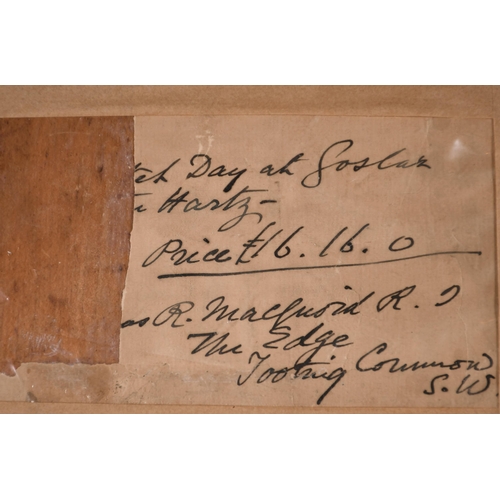 tch Day at Goslar
e Hartz -
Price £16. 16. 0
as R. Macquoid R. I
The Edge
Tooting Common
S. W